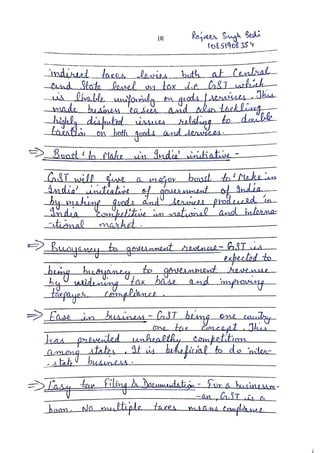 181
Rajveer Singh Bedi
indirect taxes levies both at Central
and State level on tax i.e GST which
is livable uniformly on goods / services. This
made business easier and also tackling
highly disputed issues relating to double
taxation on both goods and services.
⇒ Boost 'to Make in India' initiative -
GST will give a major boost to 'Make in
India' initiative of government of India
by making goods and services produced in
India competitive in national and interna-
-tional market.
⇒ Buoyancy to government revenue - GST is
expected to
being buoyancy to government revenue
by widening tax base and improving
taxpayer compliance.
⇒ Ease in business - GST being one country
one tax concept. This
has prevented unhealthy competition
among states. It is beneficial to do inter-
-state business.
⇒ Easy tax Filing & Documentation - For a business-
-an, GST is a
boon. No multiple taxes means compliance